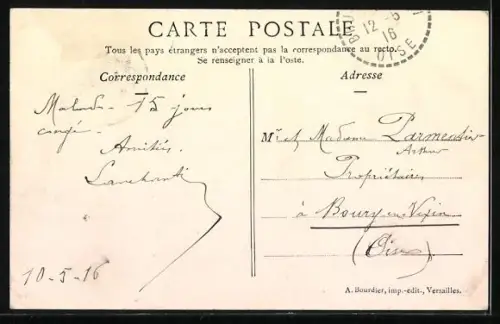 CARTE POSTALE
Tous les pays étrangers n'acceptent pas la correspondance au recto.
Se renseigner à la Poste.
Correspondance
Malade - 15 jours
congé.
Amitiés.
10-5-16
Adresse
Mr et Madame Parmentier
Arthur
Propriétaires
à Boury en Vexin
(Oise)
A. Bourdier, imp.-édit., Versailles.
12 -5
16
OISE